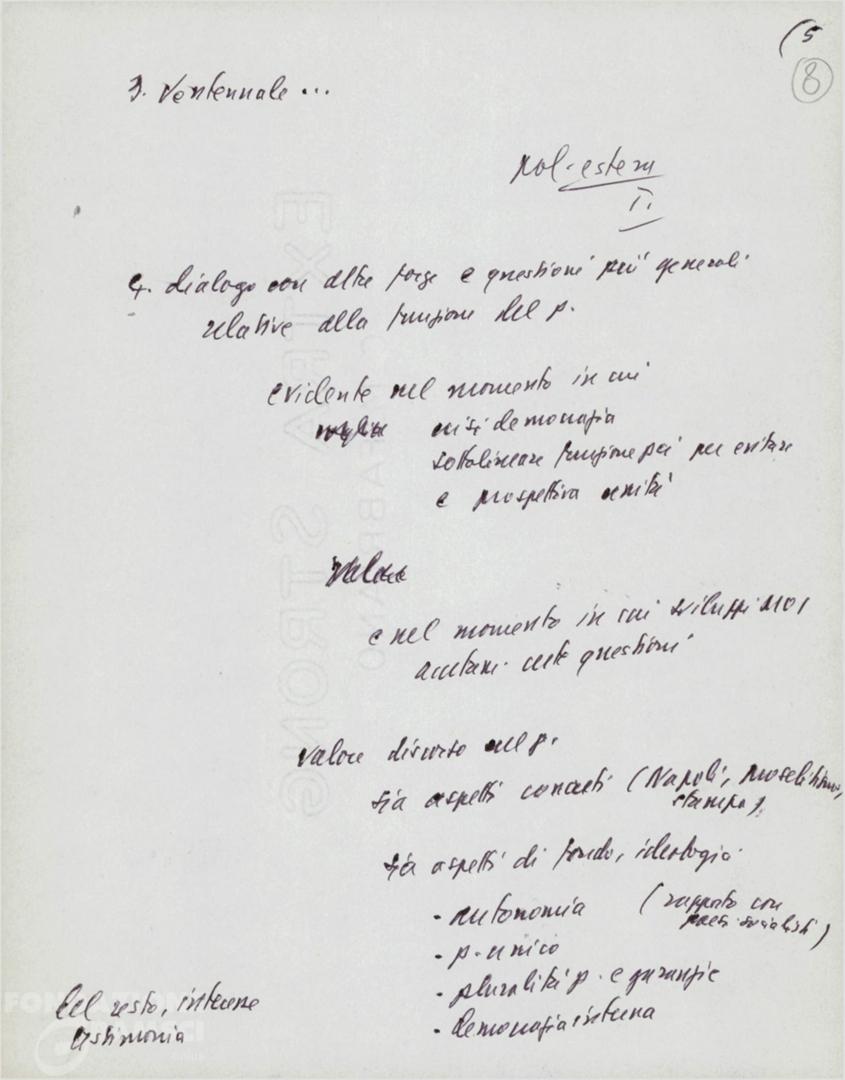 (5
8
3. Ventennale ...
pol. estera
I.
4. dialogo con altre forze e questioni più generali
relative alla funzione del p.
evidente nel momento in cui
crisi democrazia
sottolineare funzione pci per evitare
e prospettiva unità
valore
e nel momento in cui sviluppiamo
certe questioni
valore discorso sul p.
sia aspetti concreti (Napoli, proselitismo,
stampa),
sia aspetti di fondo, ideologici
- autonomia (rapporto con
paesi socialisti)
- p. unico
- pluralità p. e garanzie
- democrazia interna
Del resto, interesse
testimonia
EXTRA STRONG
FABRIANO